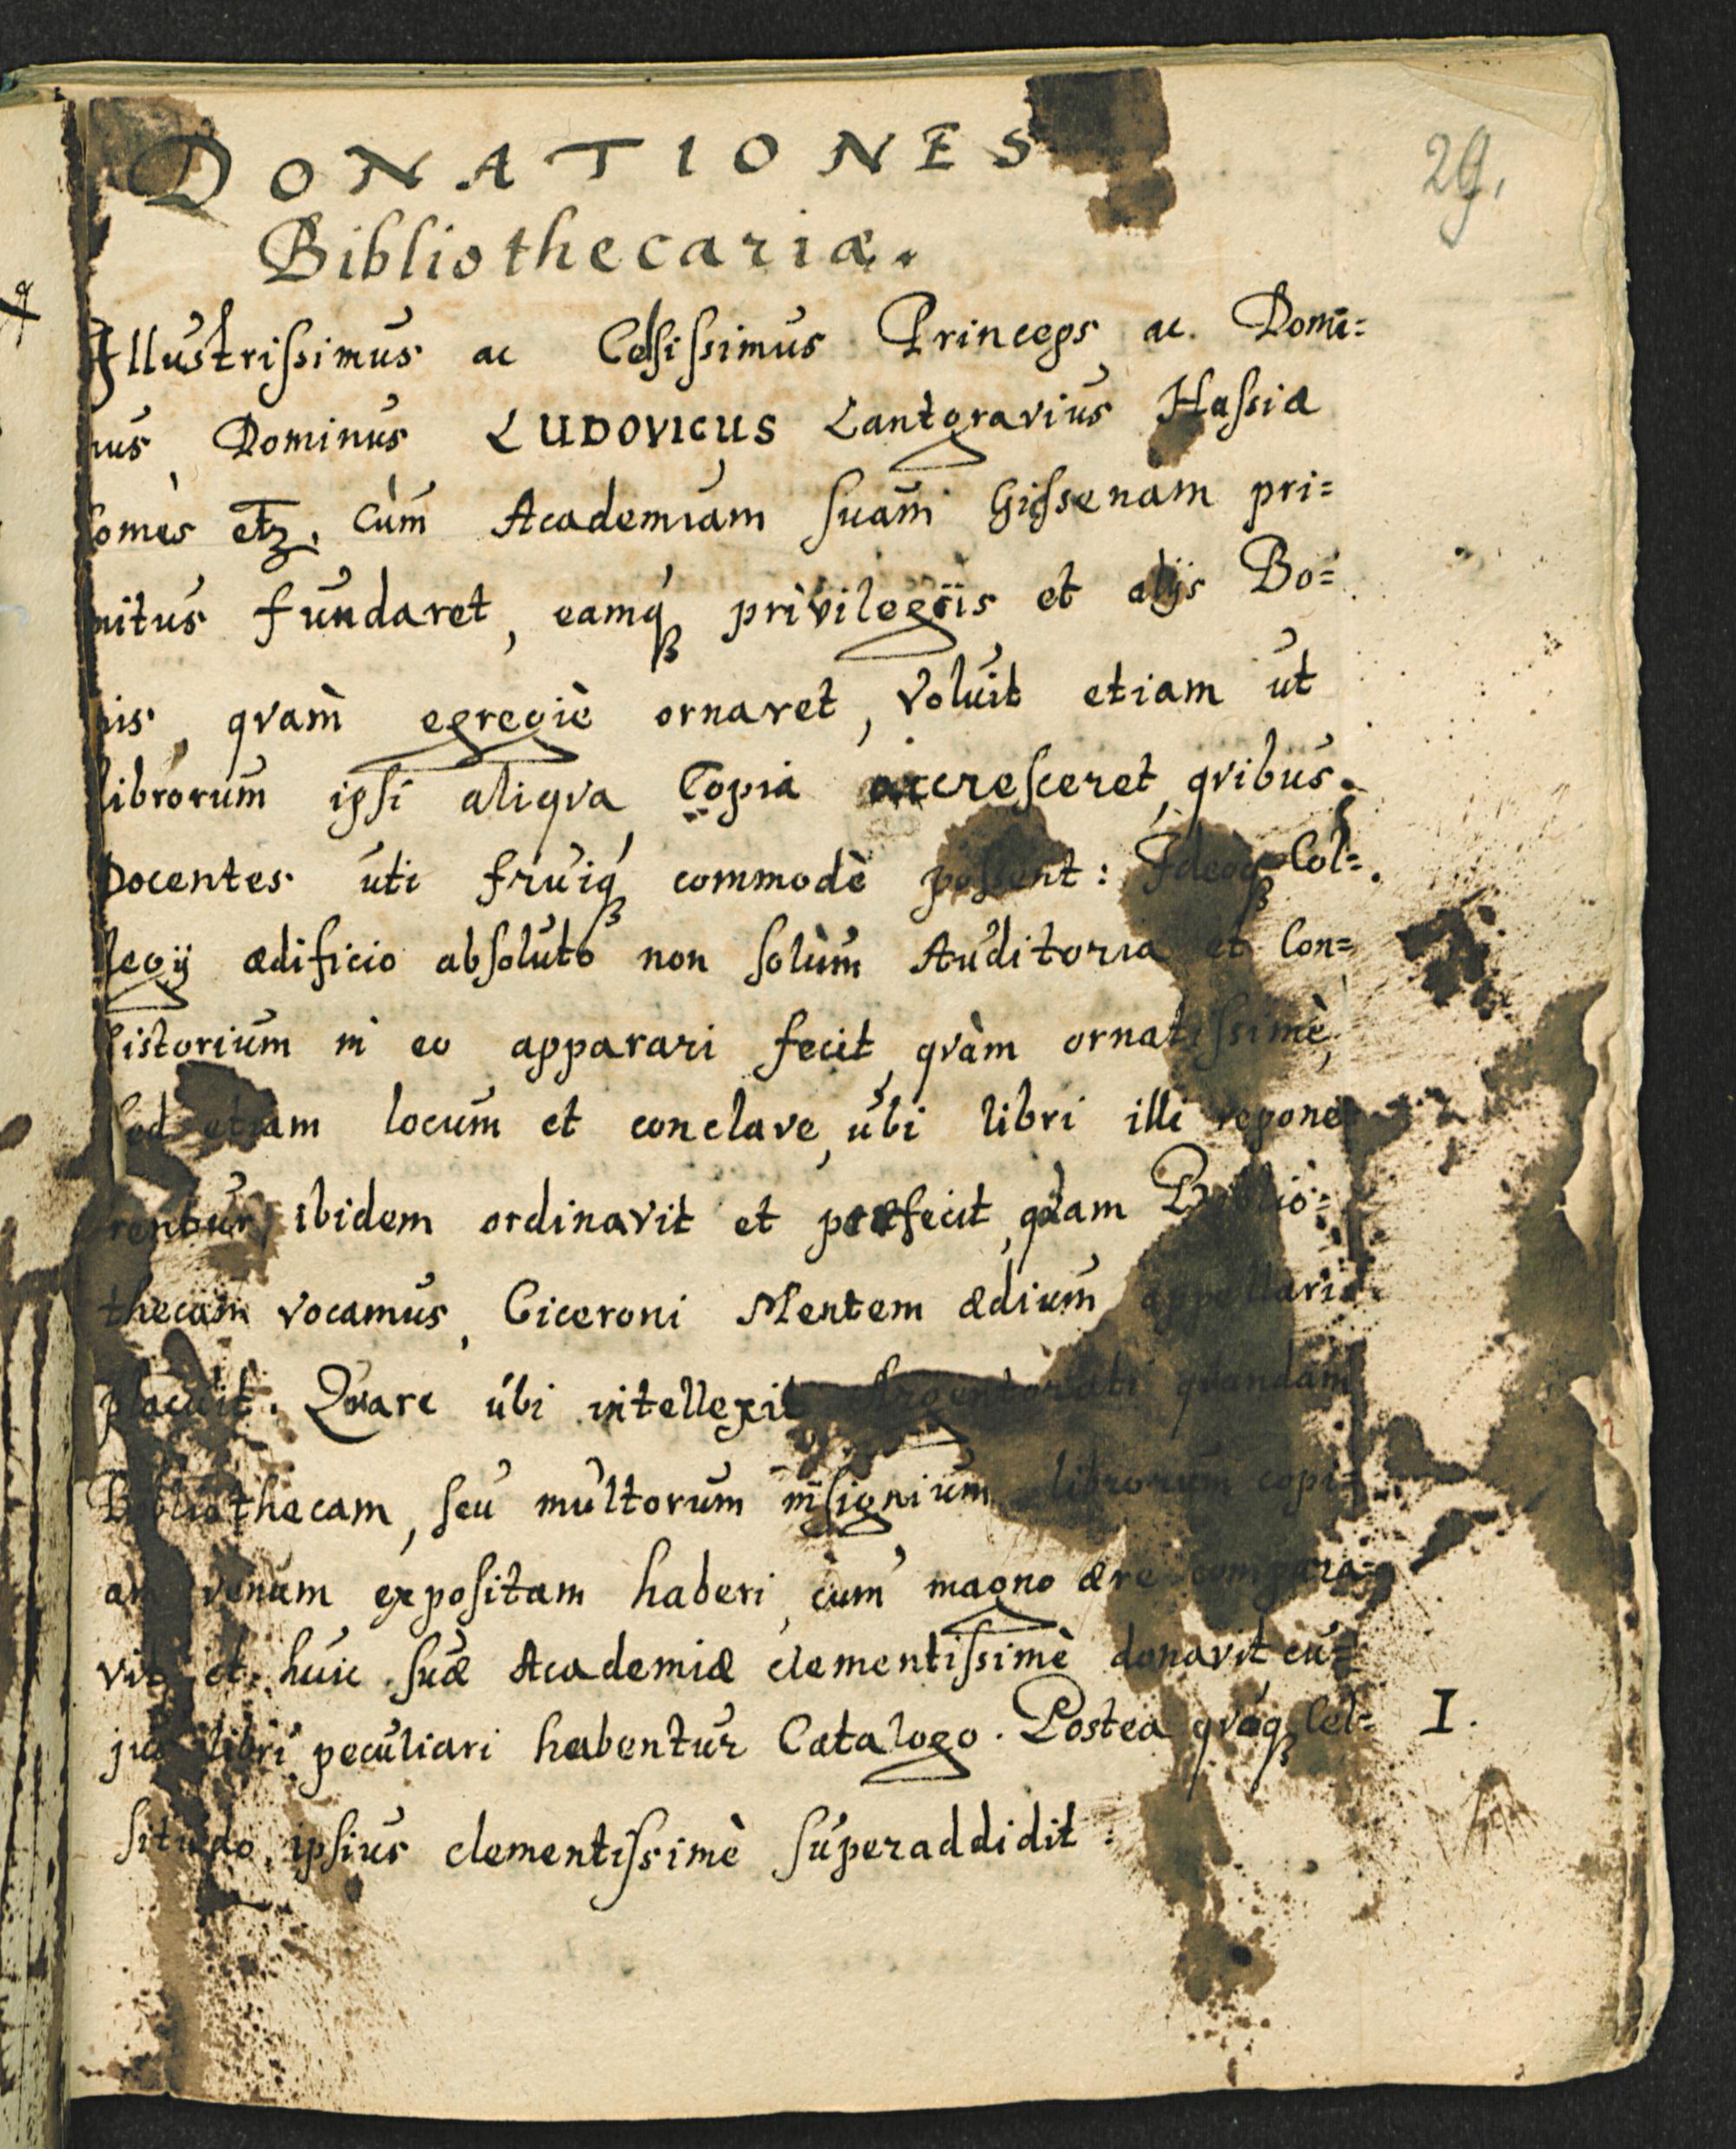 DONATIONES
29.
Bibliothecariæ.
Illustrissimus ac Celsissimus Princeps ac Domi=
nus, Dominus LUDOVICUS Lantgravius Hassiæ
Comes etz. Cùm Academiam suam Gissenam pri=
mitus fundaret, eamq́ꝫ privilegiis et alijs Bo=
nis, qvàm egregiè ornaret, voluit etiam ut
librorum ipsi aliqva Copia accresceret, qvibus
Docentes uti fruiq́ꝫ commodè possent: Ideoq́ꝫ Col=
legij ædificio absoluto non solùm Auditoria et Con=
sistorium in eo apparari fecit, qvàm ornatissimè,
sed etiam locum et conclave, ubi libri illi repone=
rentur, ibidem ordinavit et perfecit, qvam Biblio=
thecam vocamus, Ciceroni Mentem ædium appellari
placuit. Qvare ubi intellexit Argentorati qvandam
Bibliothecam, seu multorum insignium librorum copi=
am venum expositam haberi, eam magno ære compara=
vit et huic suæ Academiæ clementissimè donavit cu=
jus libri peculiari habentur Catalogo. Postea qvoq́ꝫ Cel=
I.
situdo ipsius clementissimè superaddidit: